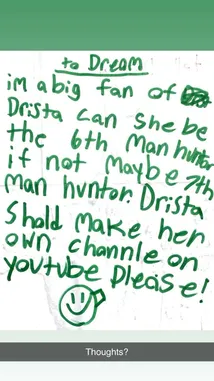 to Dream
im a big fan of
Drista can she be
the 6th man hunter
if not maybe 7th
man hunter. Drista
Shold make her
own channle on
youtube please!
Thoughts?